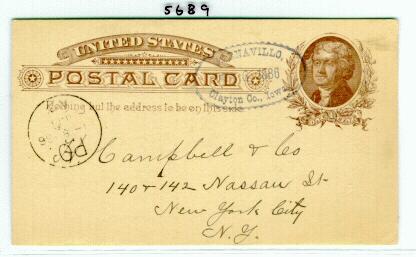 5689
UNITED STATES
POSTAL CARD
Nothing but the address to be on this side
NAVILLO,
Clayton Co., Iowa
Campbell & Co
140 & 142 Nassau St
New York City
N.Y.